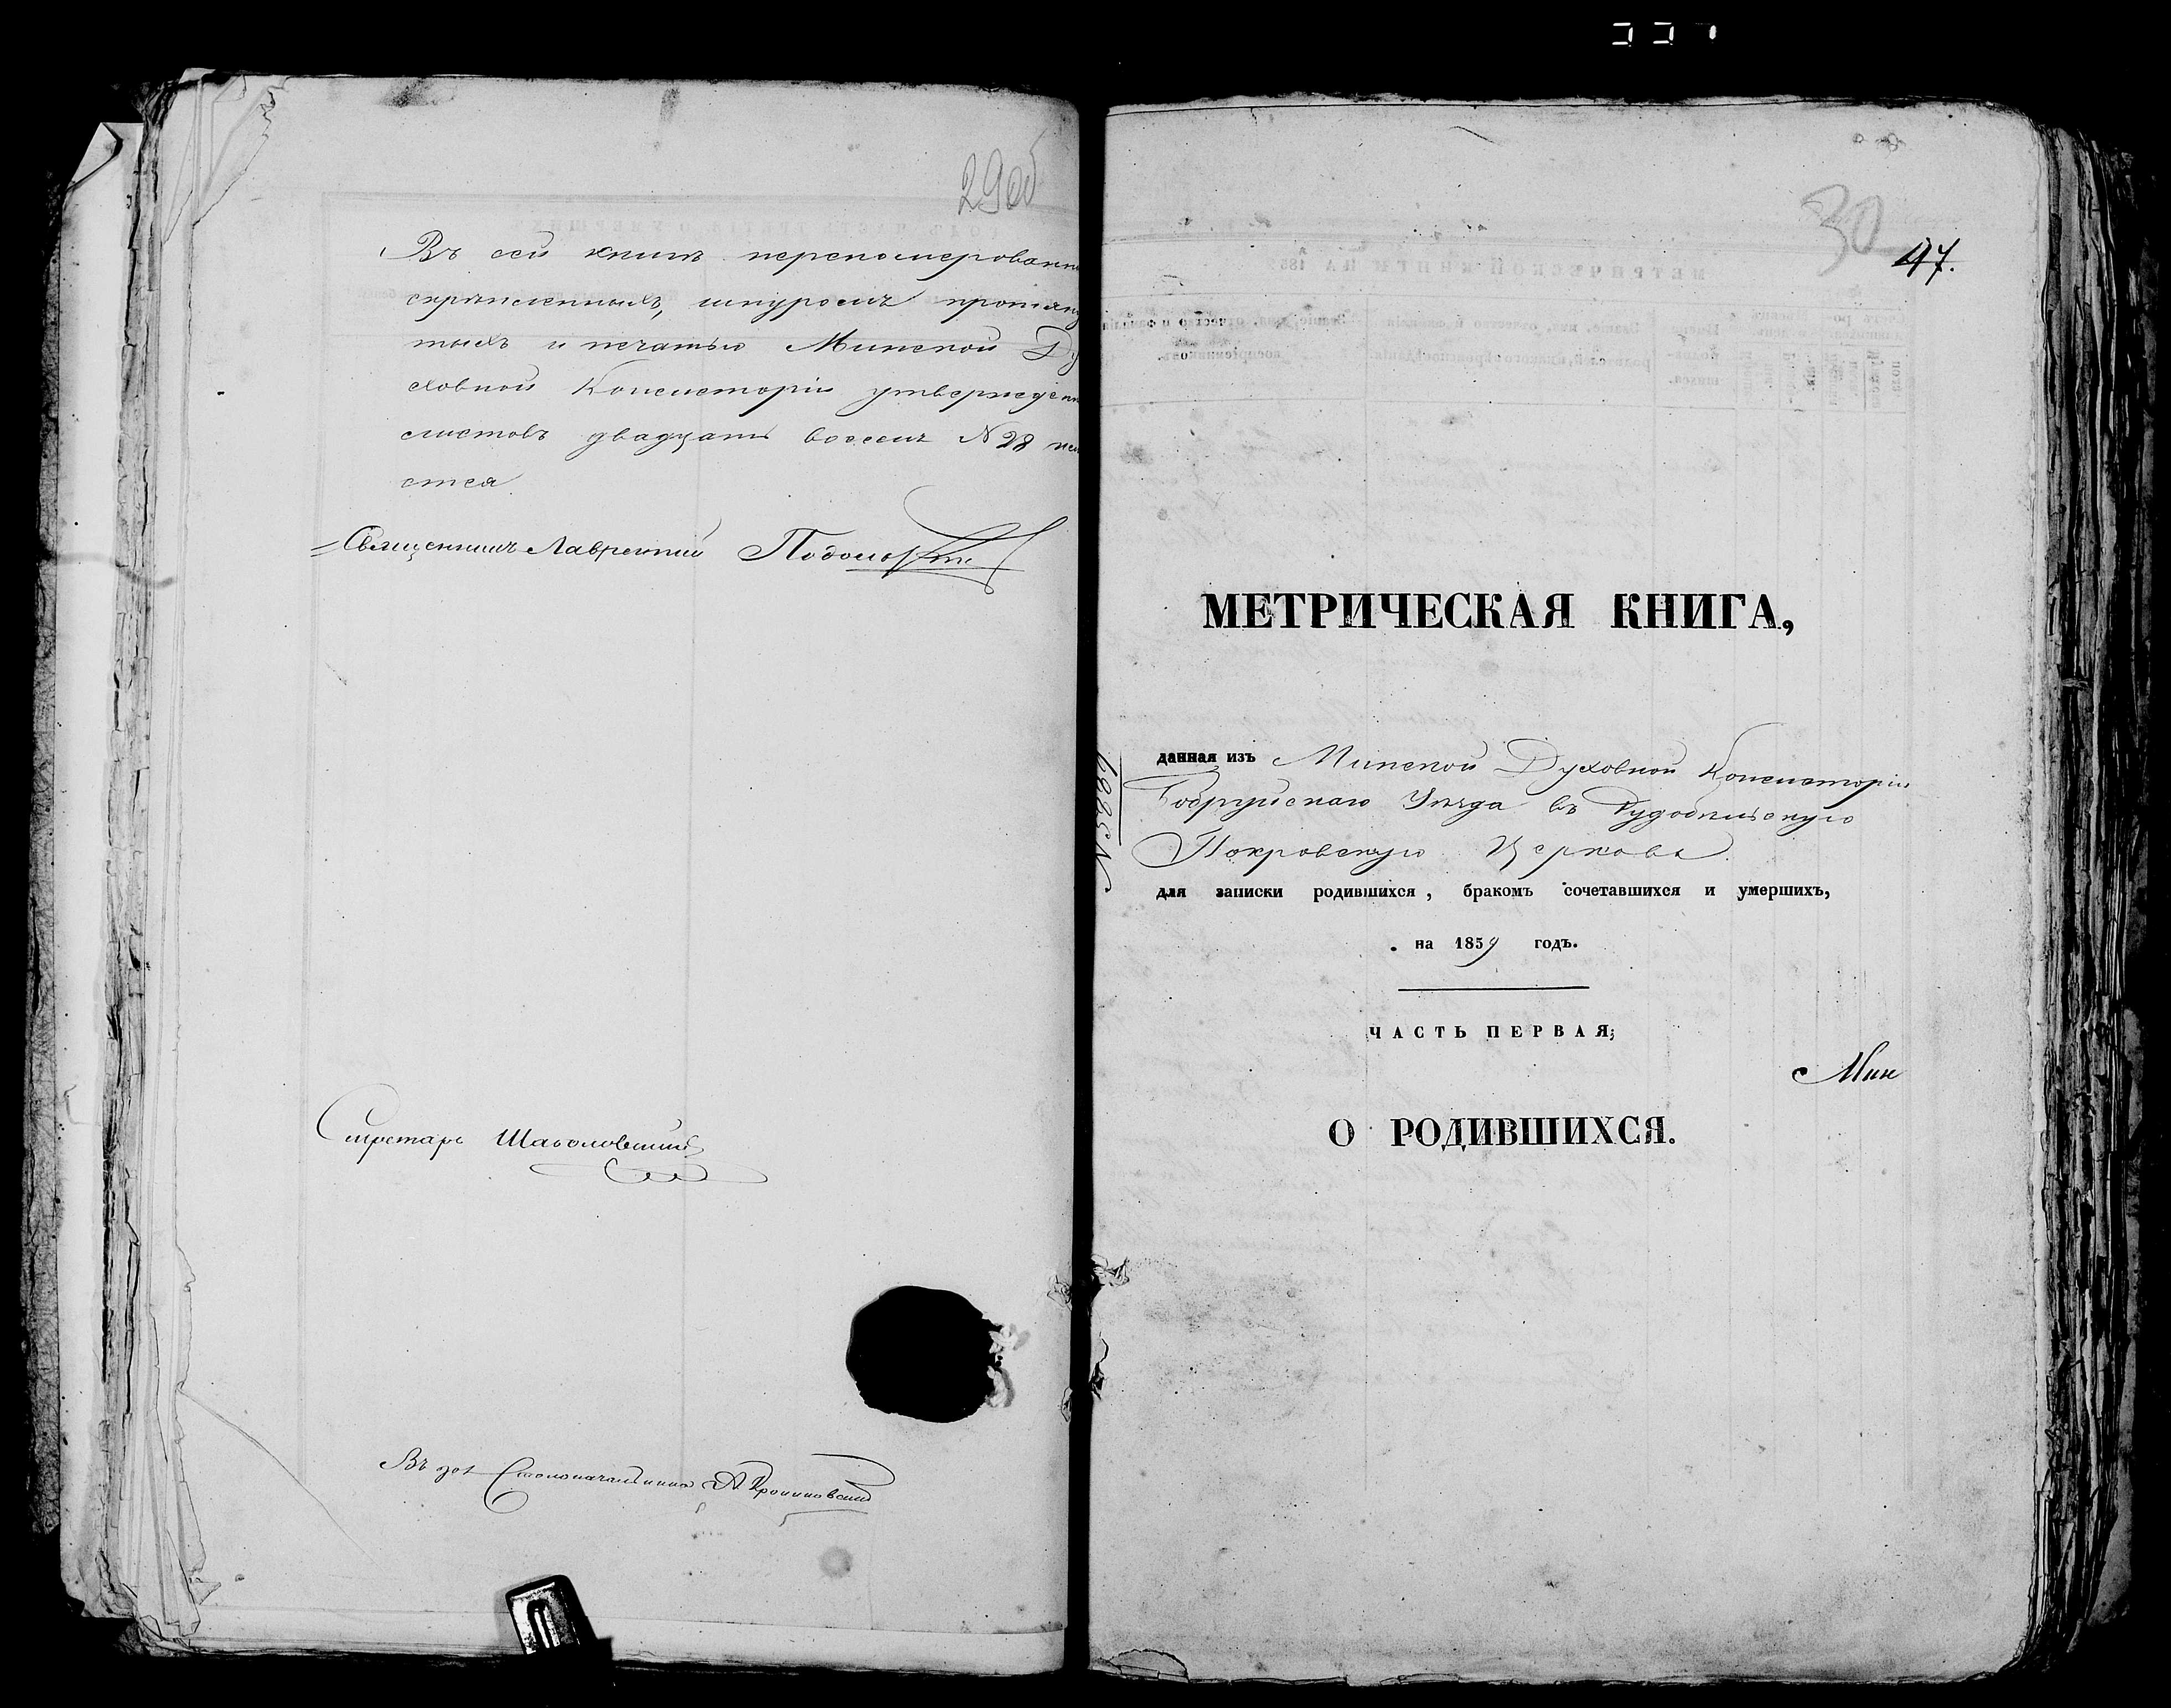 29об
Въ сей книгѣ перепомерованн
скрѣпленныхъ, шнуромъ протяну
тыхъ и печатью Минской Ду
ховной Консисторіи утвержден
листовъ двадцать восемь N 28
ется
Священникъ Лаврентий
Секретарь
Въ дол Столоначальника
30
47.
МЕТРИЧЕСКАЯ КНИГА,
данная изъ Минской Духовной Консисторіи
Бобруйскаго Уѣзда въ Рудобѣльскую
Покровскую Церковь
для записки родившихся, бракомъ сочетавшихся и умершихъ,
на 1859 годъ.
ЧАСТЬ ПЕРВАЯ;
Мин
О РОДИВШИХСЯ.